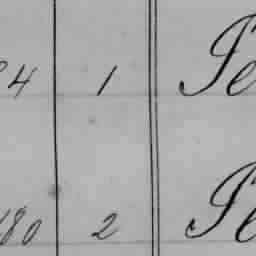 4 1 Pe
180 2 Pe